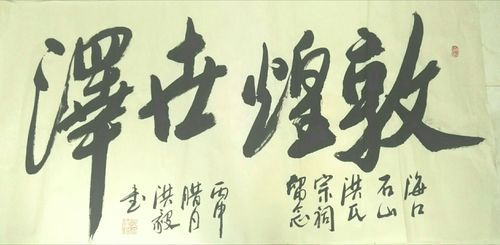 敦煌世澤
海口
石山
洪氏
宗祠
留念
丙申
腊月
洪毅
书